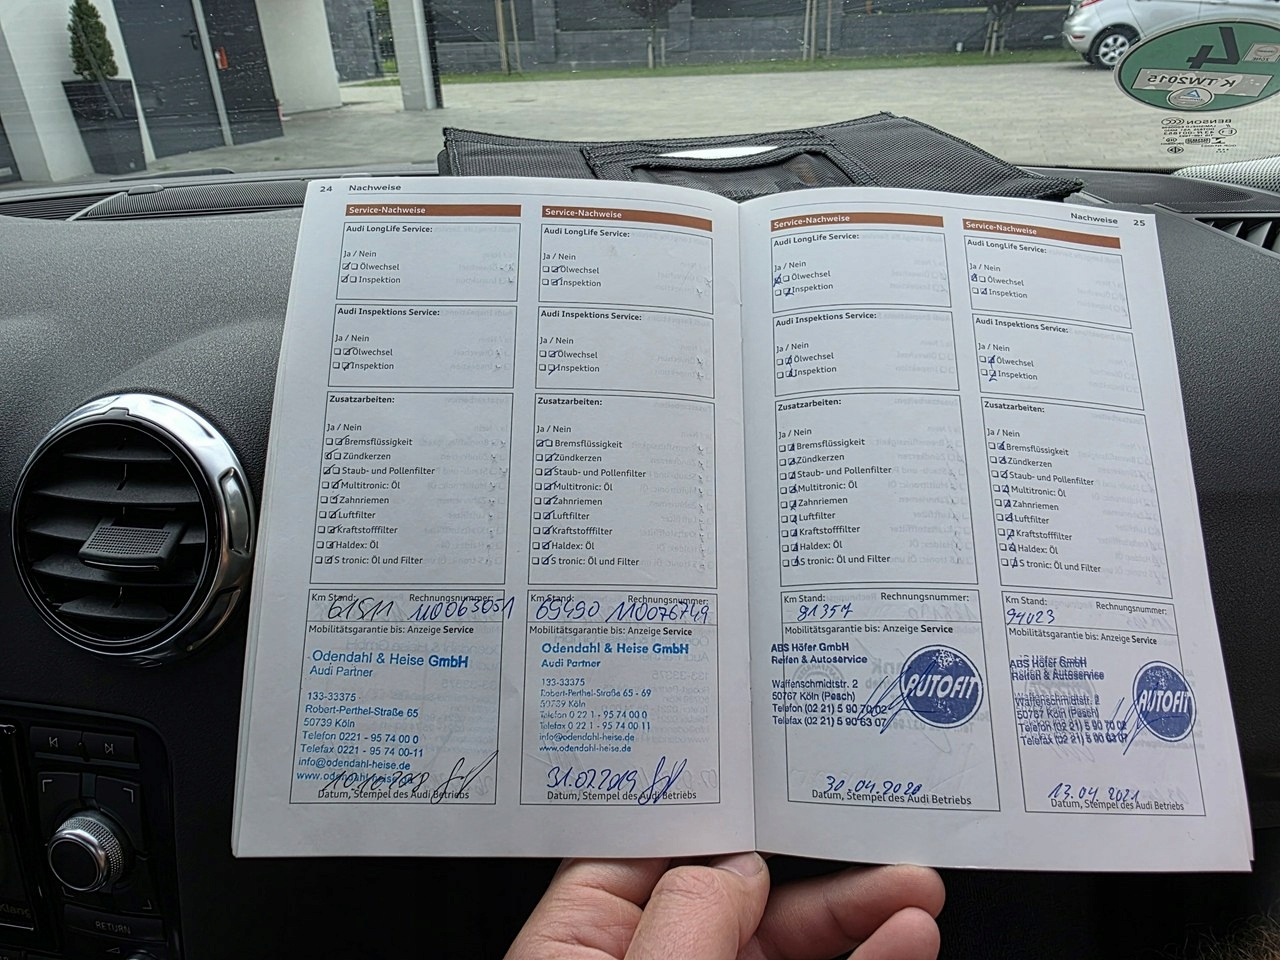 4
K TW2015
BENSON
24 Nachweise
Service-Nachweise
Audi LongLife Service:
Ja / Nein
Ölwechsel
Inspektion
Audi Inspektions Service:
Ja / Nein
Ölwechsel
Inspektion
Zusatzarbeiten:
Ja / Nein
Bremsflüssigkeit
Zündkerzen
Staub- und Pollenfilter
Multitronic: Öl
Zahnriemen
Luftfilter
Kraftstofffilter
Haldex: Öl
S tronic: Öl und Filter
Km Stand: Rechnungsnummer:
61511 110063051
Mobilitätsgarantie bis: Anzeige Service
Odendahl & Heise GmbH
Audi Partner
133-33375
Robert-Perthel-Straße 65
50739 Köln
Telefon 0221 - 95 74 00 0
Telefax 0221 - 95 74 00-11
info@odendahl-heise.de
www.odendahl-heise.de
Datum, Stempel des Audi Betriebs
Service-Nachweise
Audi LongLife Service:
Ja / Nein
Ölwechsel
Inspektion
Audi Inspektions Service:
Ja / Nein
Ölwechsel
Inspektion
Zusatzarbeiten:
Ja / Nein
Bremsflüssigkeit
Zündkerzen
Staub- und Pollenfilter
Multitronic: Öl
Zahnriemen
Luftfilter
Kraftstofffilter
Haldex: Öl
S tronic: Öl und Filter
Km Stand: Rechnungsnummer:
69490 110076749
Mobilitätsgarantie bis: Anzeige Service
Odendahl & Heise GmbH
Audi Partner
133-33375
Robert-Perthel-Straße 65 - 69
50739 Köln
Telefon 0 22 1 - 95 74 00 0
Telefax 0 22 1 - 95 74 00-11
info@odendahl-heise.de
www.odendahl-heise.de
31.07.2019
Datum, Stempel des Audi Betriebs
Nachweise 25
Service-Nachweise
Audi LongLife Service:
Ja / Nein
Ölwechsel
Inspektion
Audi Inspektions Service:
Ja / Nein
Ölwechsel
Inspektion
Zusatzarbeiten:
Ja / Nein
Bremsflüssigkeit
Zündkerzen
Staub- und Pollenfilter
Multitronic: Öl
Zahnriemen
Luftfilter
Kraftstofffilter
Haldex: Öl
S tronic: Öl und Filter
Km Stand: Rechnungsnummer:
81357
Mobilitätsgarantie bis: Anzeige Service
ABS Höfer GmbH
Reifen & Autoservice
Waffenschmidtstr. 2
50767 Köln (Pesch)
Telefon (02 21) 5 90 70 02
Telefax (02 21) 5 90 63 07
AUTOFIT
30.04.2020
Datum, Stempel des Audi Betriebs
Service-Nachweise
Audi LongLife Service:
Ja / Nein
Ölwechsel
Inspektion
Audi Inspektions Service:
Ja / Nein
Ölwechsel
Inspektion
Zusatzarbeiten:
Ja / Nein
Bremsflüssigkeit
Zündkerzen
Staub- und Pollenfilter
Multitronic: Öl
Zahnriemen
Luftfilter
Kraftstofffilter
Haldex: Öl
S tronic: Öl und Filter
Km Stand: Rechnungsnummer:
94023
Mobilitätsgarantie bis: Anzeige Service
ABS Höfer GmbH
Reifen & Autoservice
Waffenschmidtstr. 2
50767 Köln (Pesch)
Telefon (02 21) 5 90 70 02
Telefax (02 21) 5 90 63 07
AUTOFIT
13.04.2021
Datum, Stempel des Audi Betriebs
RETURN